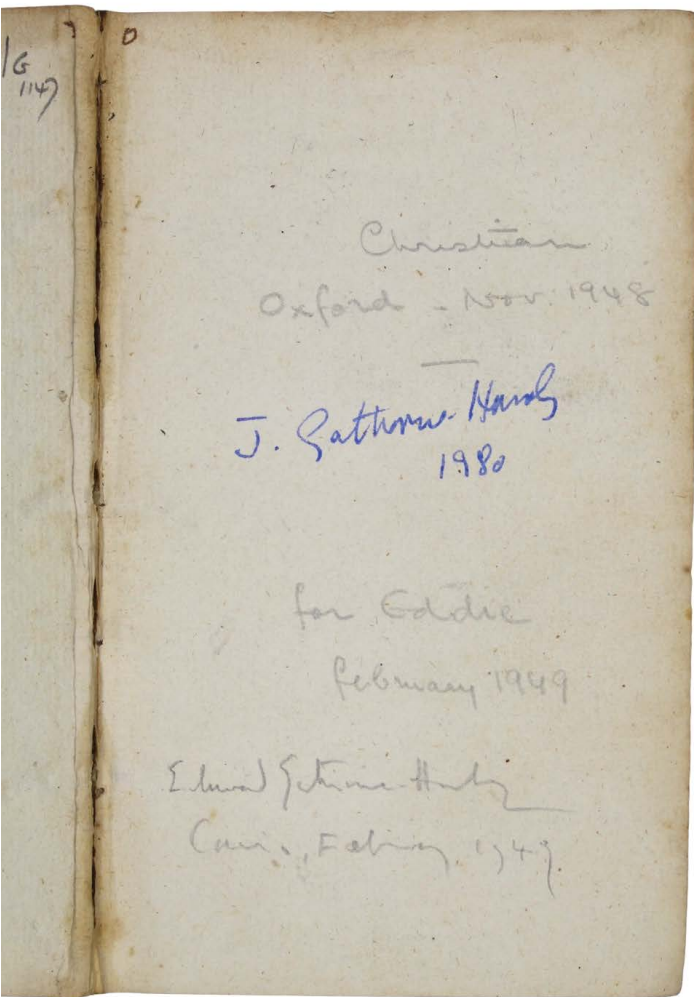 /G
1147
Christian
Oxford - Nov. 1948
J. Gathorne-Hardy
1980
for Eddie
february 1949
Edward Gathorne-Hardy
Cairo, February, 1949.